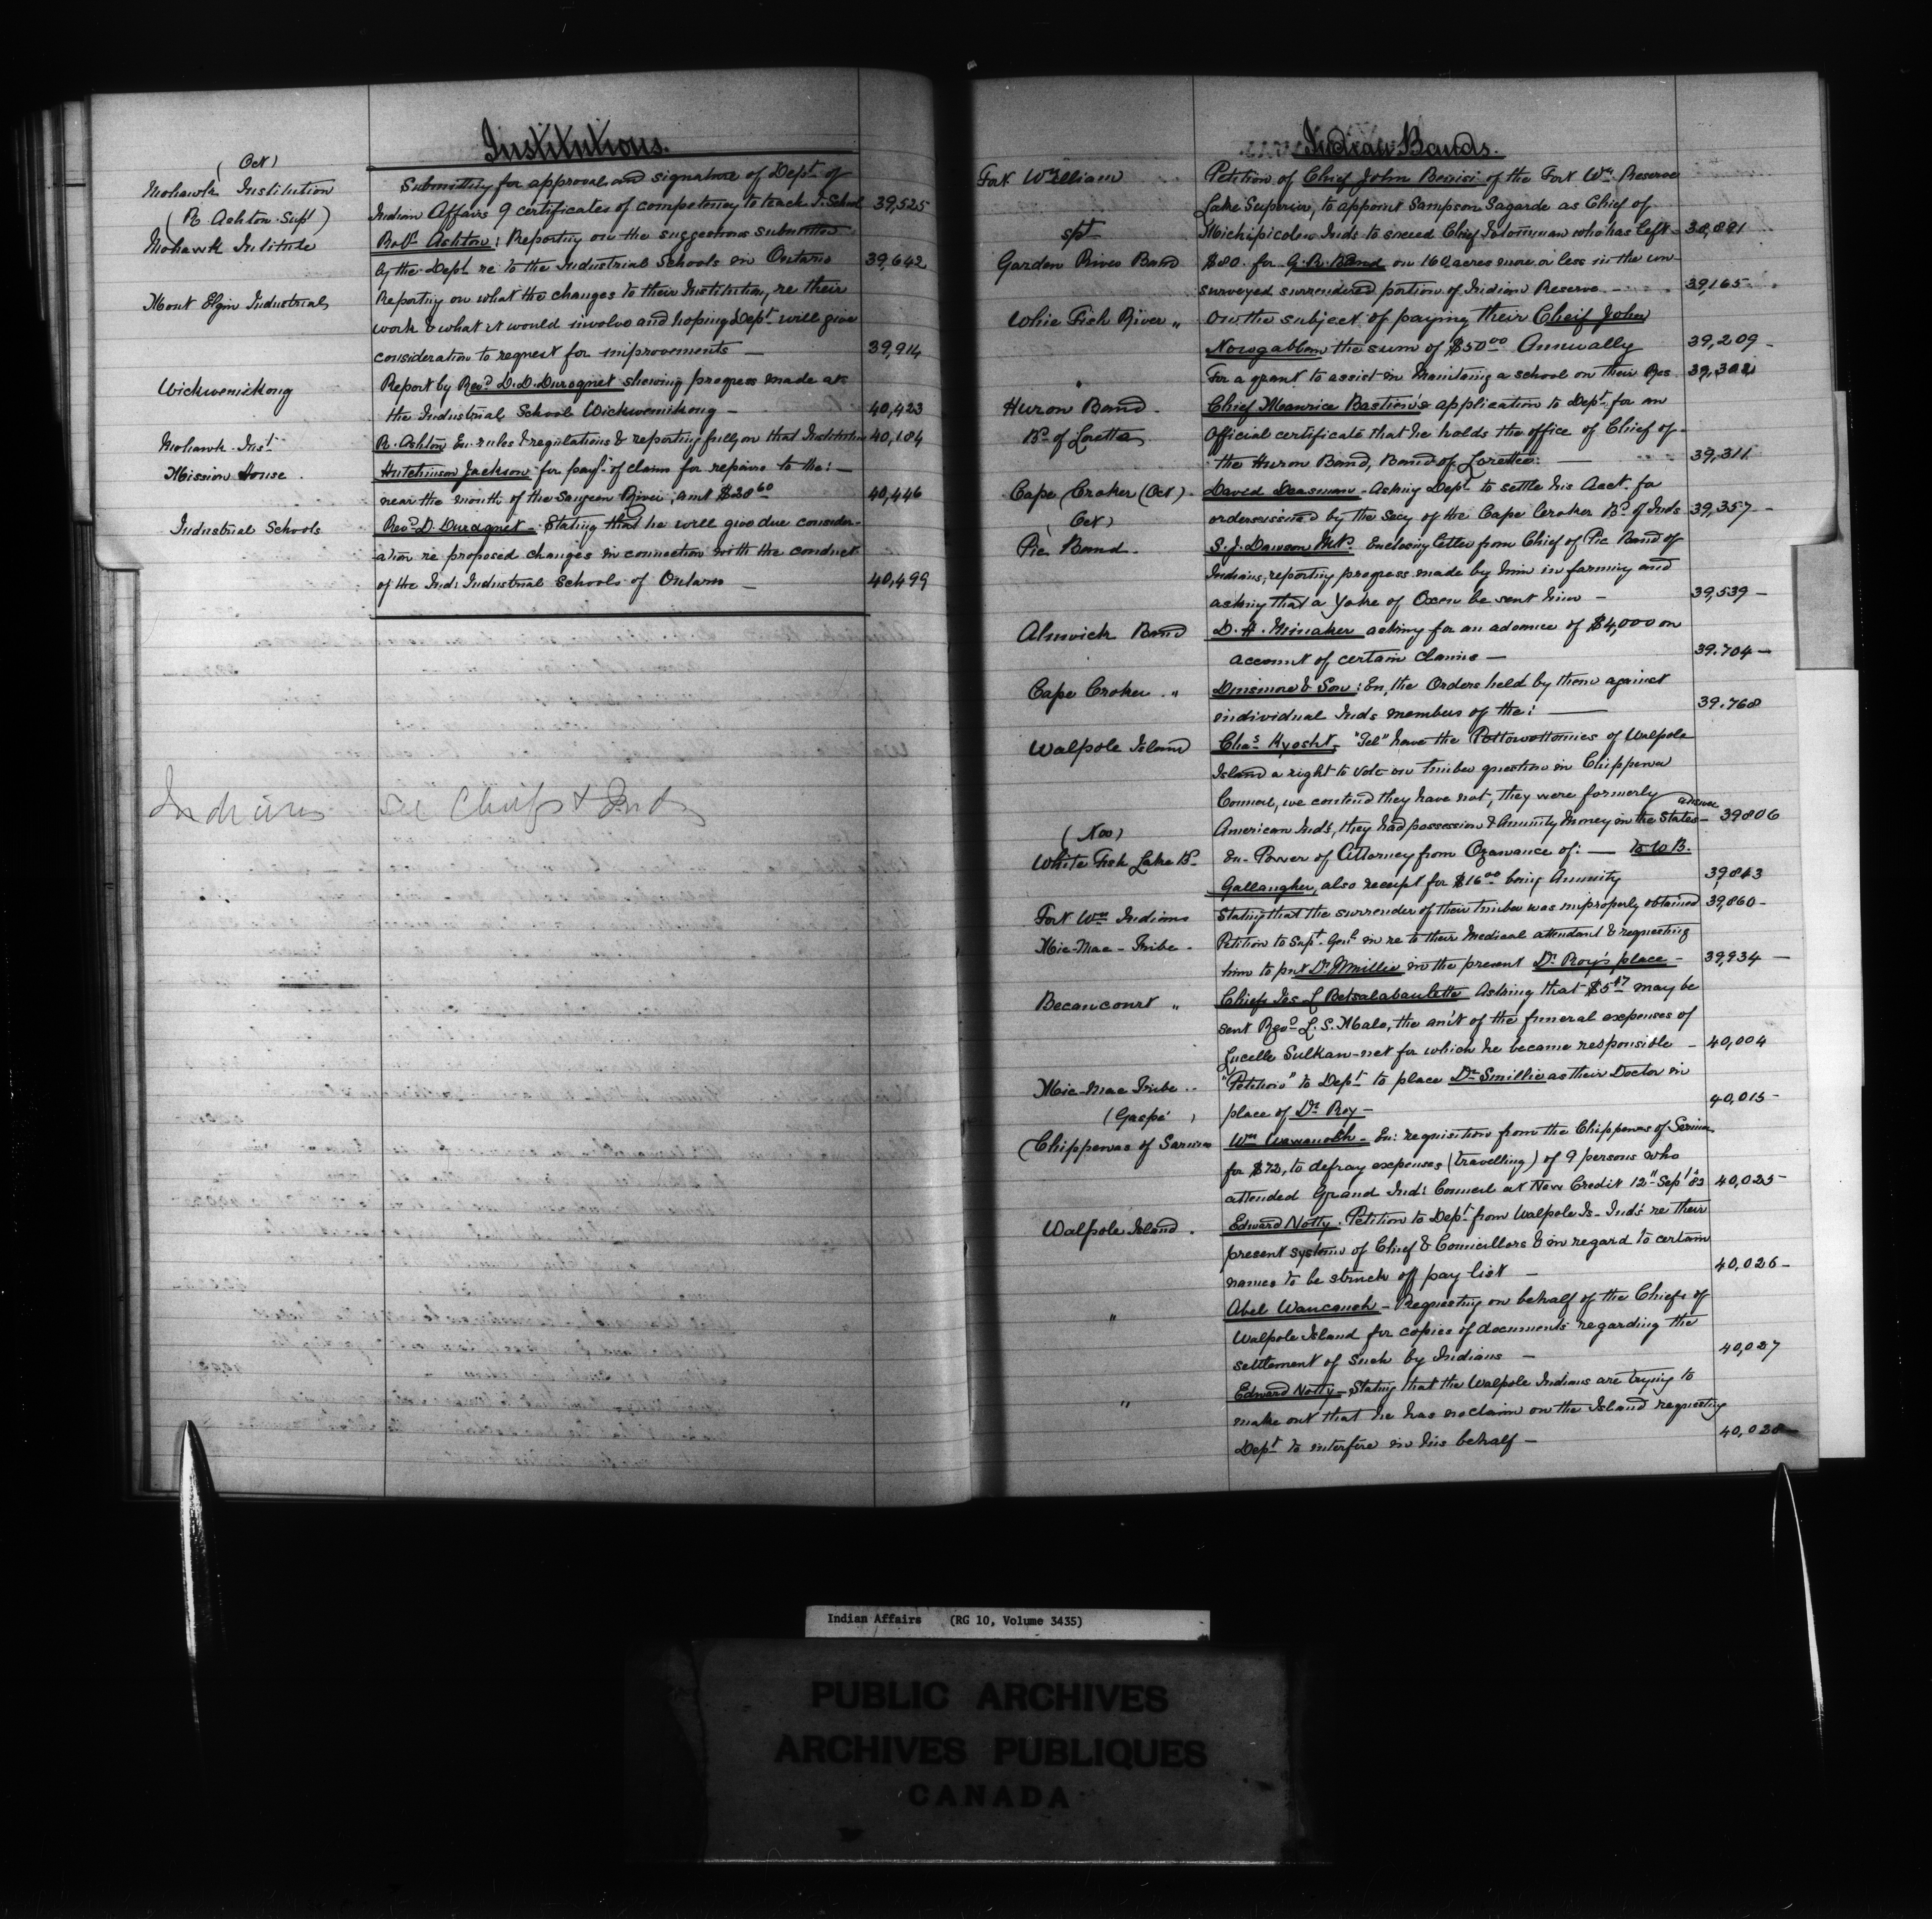 Institutions.
(Oct)
Mohawk Institution Submitting for approval and signature of Dept of
(R Ashton Supt) Indian Affairs 9 certificates of competency to teach I. School 39,525
Mohawk Institute Robt Ashton: Reporting on the suggestions submitted
by the Dept re to the Industrial Schools in Ontario 39,642
Mont Elgin Industrial Reporting on what the changes to their Institution, re their
work & what it would involve and hoping Dept will give
consideration to request for improvements — 39,914
Wickwemikong Report by Revd D. D. Duroqnet shewing progress made at
the Industrial School Wickwemikong — 40,423
Mohawk Inst R. Ashton En. rules & regulations & reporting fully on that Institution 40,184
Mission House. Hutchinson Jackson for payt of claim for repairs to the: —
near the mouth of the Saugeen River, amt $28 60 40,446
Industrial Schools Revd D. Duroqnet - Stating that he will give due consider-
ation re proposed changes in connection with the conduct
of the Ind: Industrial Schools of Ontario — 40,499
Indians see Chiefs & Inds
Indian Bands.
Fort William Petition of Chief John Benisi of the Fort Wm Reserve
Lake Superior, to appoint Sampson Sagarde as Chief of
spt Michipicoten Inds to succeed Chief who has left 38,891
Garden River Band $80 for G. R. Band on 160 acres more or less in the un-
surveyed surrendered portion of Indian Reserve — 39,165
Whie Fish River " On the subject of paying their Cheif John
Nowgabbow the sum of $50 00 Annually 39,209 -
" For a grant to assist in maintaing a school on their Res 39,302
Huron Band - Chief Maurice Bastien's application to Dept for an
Bd of Lorette Official certificate that he holds the office of Chief of
the Huron Band, Band of Lorette: — 39,311
Cape Croker (Oct). David Seasman - Asking Dept to settle his Acct for
(Oct) orders issued by the Secy of the Cape Croker Bd of Inds 39,357 -
Pic Band - S. J. Dawson M.P. Enclosing letter from Chief of Pic Band of
Indians, reporting progress made by him in farming and
asking that a Yoke of Oxen be sent him — 39,539 —
Alnwick Band D. H. Minaker asking for an advance of $4,000 on
account of certain claims — 39.704 —
Cape Croker " Dinsmore & Son: En, the Orders held by them against
individual Inds members of the: — 39.768
Walpole Island Chas Kyosht - "Tel" have the Pottowottomies of Walpole
Island a right to vote on timber question in Chippewa
Council, we contend they have not, they were formerly
(Nov) American Inds, they had possession & Annuity Money in the States — answer 39806
White Fish Lake Bd En- Power of Attorney from Ozawance of: — to W B.
Gallangher, also receipt for $16 00 being Annuity 39,843
Fort Wm Indians Stating that the surrender of their timber was improperly obtained 39,860 -
Mic-Mac-Tribe - Petition to Supt Genl in re to their Medical attendant & requesting
him to put Dr Smillie in the present Dr Roy's place - 39,934 —
Becancourt " Chiefs Jes L Betsalabaulette Asking that $5 17 may be
sent Revd L. S. Malo, the am't of the funeral expenses of
Lucelle Sulkan-net for which he became responsible - 40,004
Mic-Mac Tribe " "Petition" to Dept to place Dr Smillie as their Doctor in
(Gaspé) place of Dr Roy — 40,015 -
Chippewas of Sarnia Wm Wawanosh - En: requisition from the Chippewas of Sarnia
for $72, to defray expenses (travelling) of 9 persons who
attended Grand Ind: Council at New Credit 12" Sept 82 40,025 -
Walpole Island. Edward Notty. Petition to Dept from Walpole Is- Inds re their
present system of Chief & Councillors & in regard to certain
names to be struck off pay list — 40,026 -
" Abel Waucaush - Requesting on behalf of the Chiefs of
Walpole Island for copies of documents regarding the
settlement of such by Indians — 40,027
" Edward Notty - Stating that the Walpole Indians are trying to
make out that he has no claim on the Island requesting
Dept to interfere in his behalf — 40,028 —
Indian Affairs (RG 10, Volume 3435)
PUBLIC ARCHIVES
ARCHIVES PUBLIQUES
CANADA